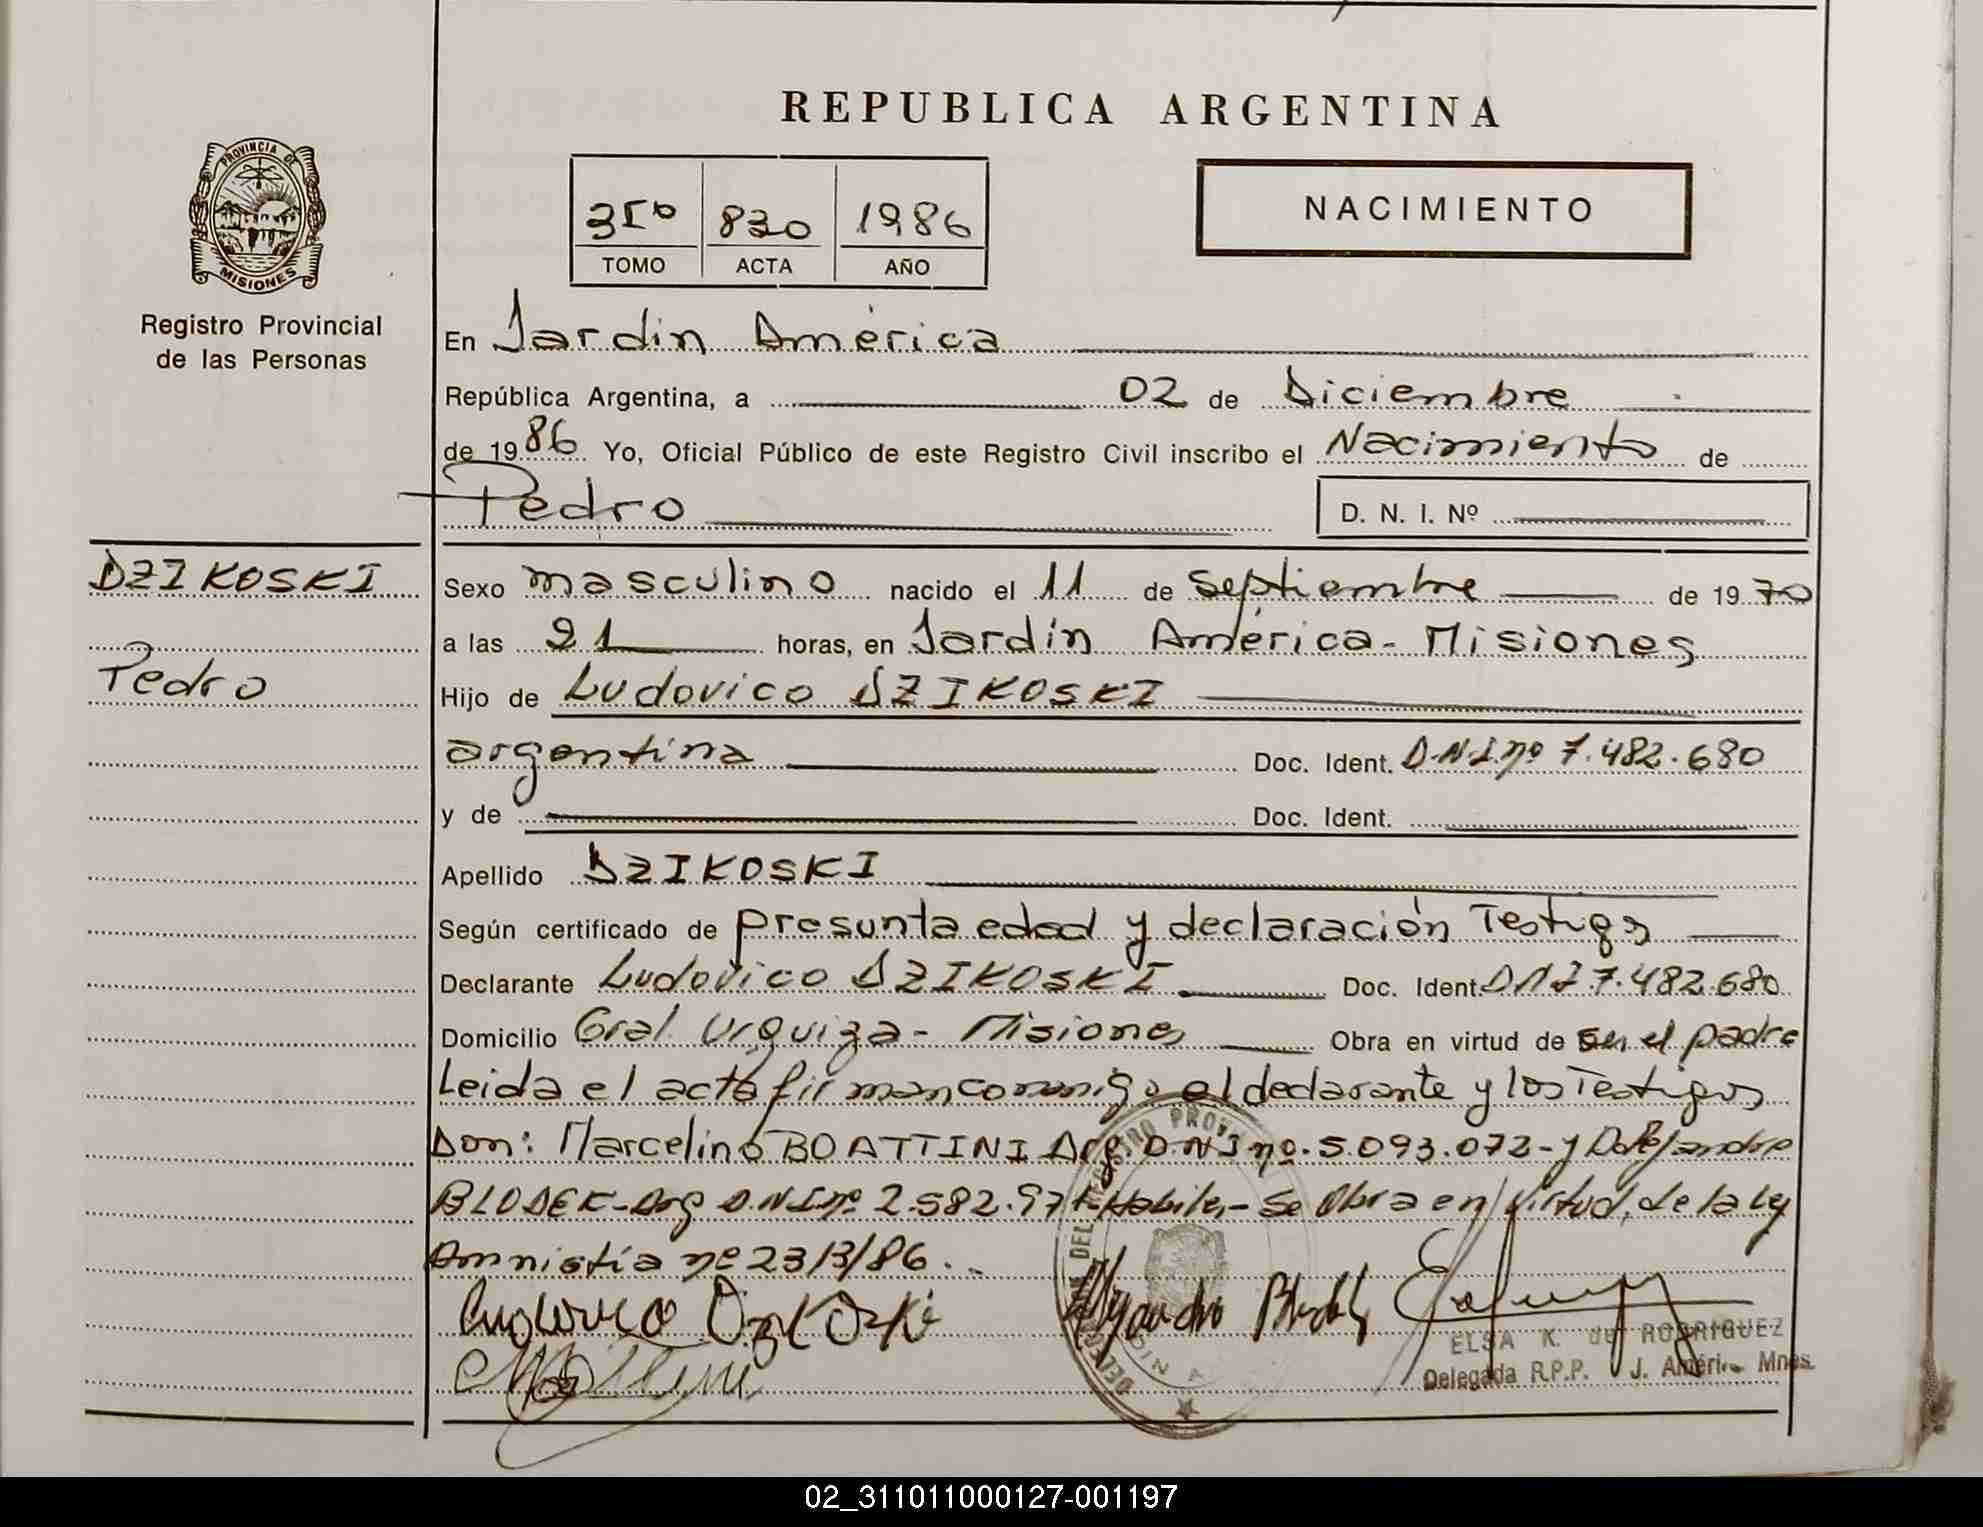 REPUBLICA ARGENTINA
PROVINCIA DE
MISIONES
Registro Provincial
de las Personas
35º 830 1986
TOMO ACTA AÑO
NACIMIENTO
En Jardin América
República Argentina, a 02 de Diciembre
de 1986 Yo, Oficial Público de este Registro Civil inscribo el Nacimiento de
Pedro D. N. I. Nº
DZIKOSKI
Pedro
Sexo masculino nacido el 11 de septiembre de 1970
a las 21 horas, en Jardín América - Misiones
Hijo de Ludovico DZIKOSKI
argentina Doc. Ident. D.N.I. nº 7.482.680
y de Doc. Ident.
Apellido DZIKOSKI
Según certificado de presunta edad y declaración Testigs
Declarante Ludovico DZIKOSKI Doc. Ident. DNI 7.482.680
Domicilio Gral. Urquiza - Misiones Obra en virtud de ser el padre
Leida el acta firman conmigo el declarante y los Testigos
Don: Marcelino BOATTINI Arg. D.N.I nº. 5.093.072 - y
BLODEK - Arg D.N.I nº 2.582. - Se Obra en virtud, de la Ley
Amnistía nº 23/3/86.
Ludovico Dzikoski
ELSA K. de RODRIGUEZ
Delegada R.P.P. J. Améri Mnes.
02_311011000127-001197